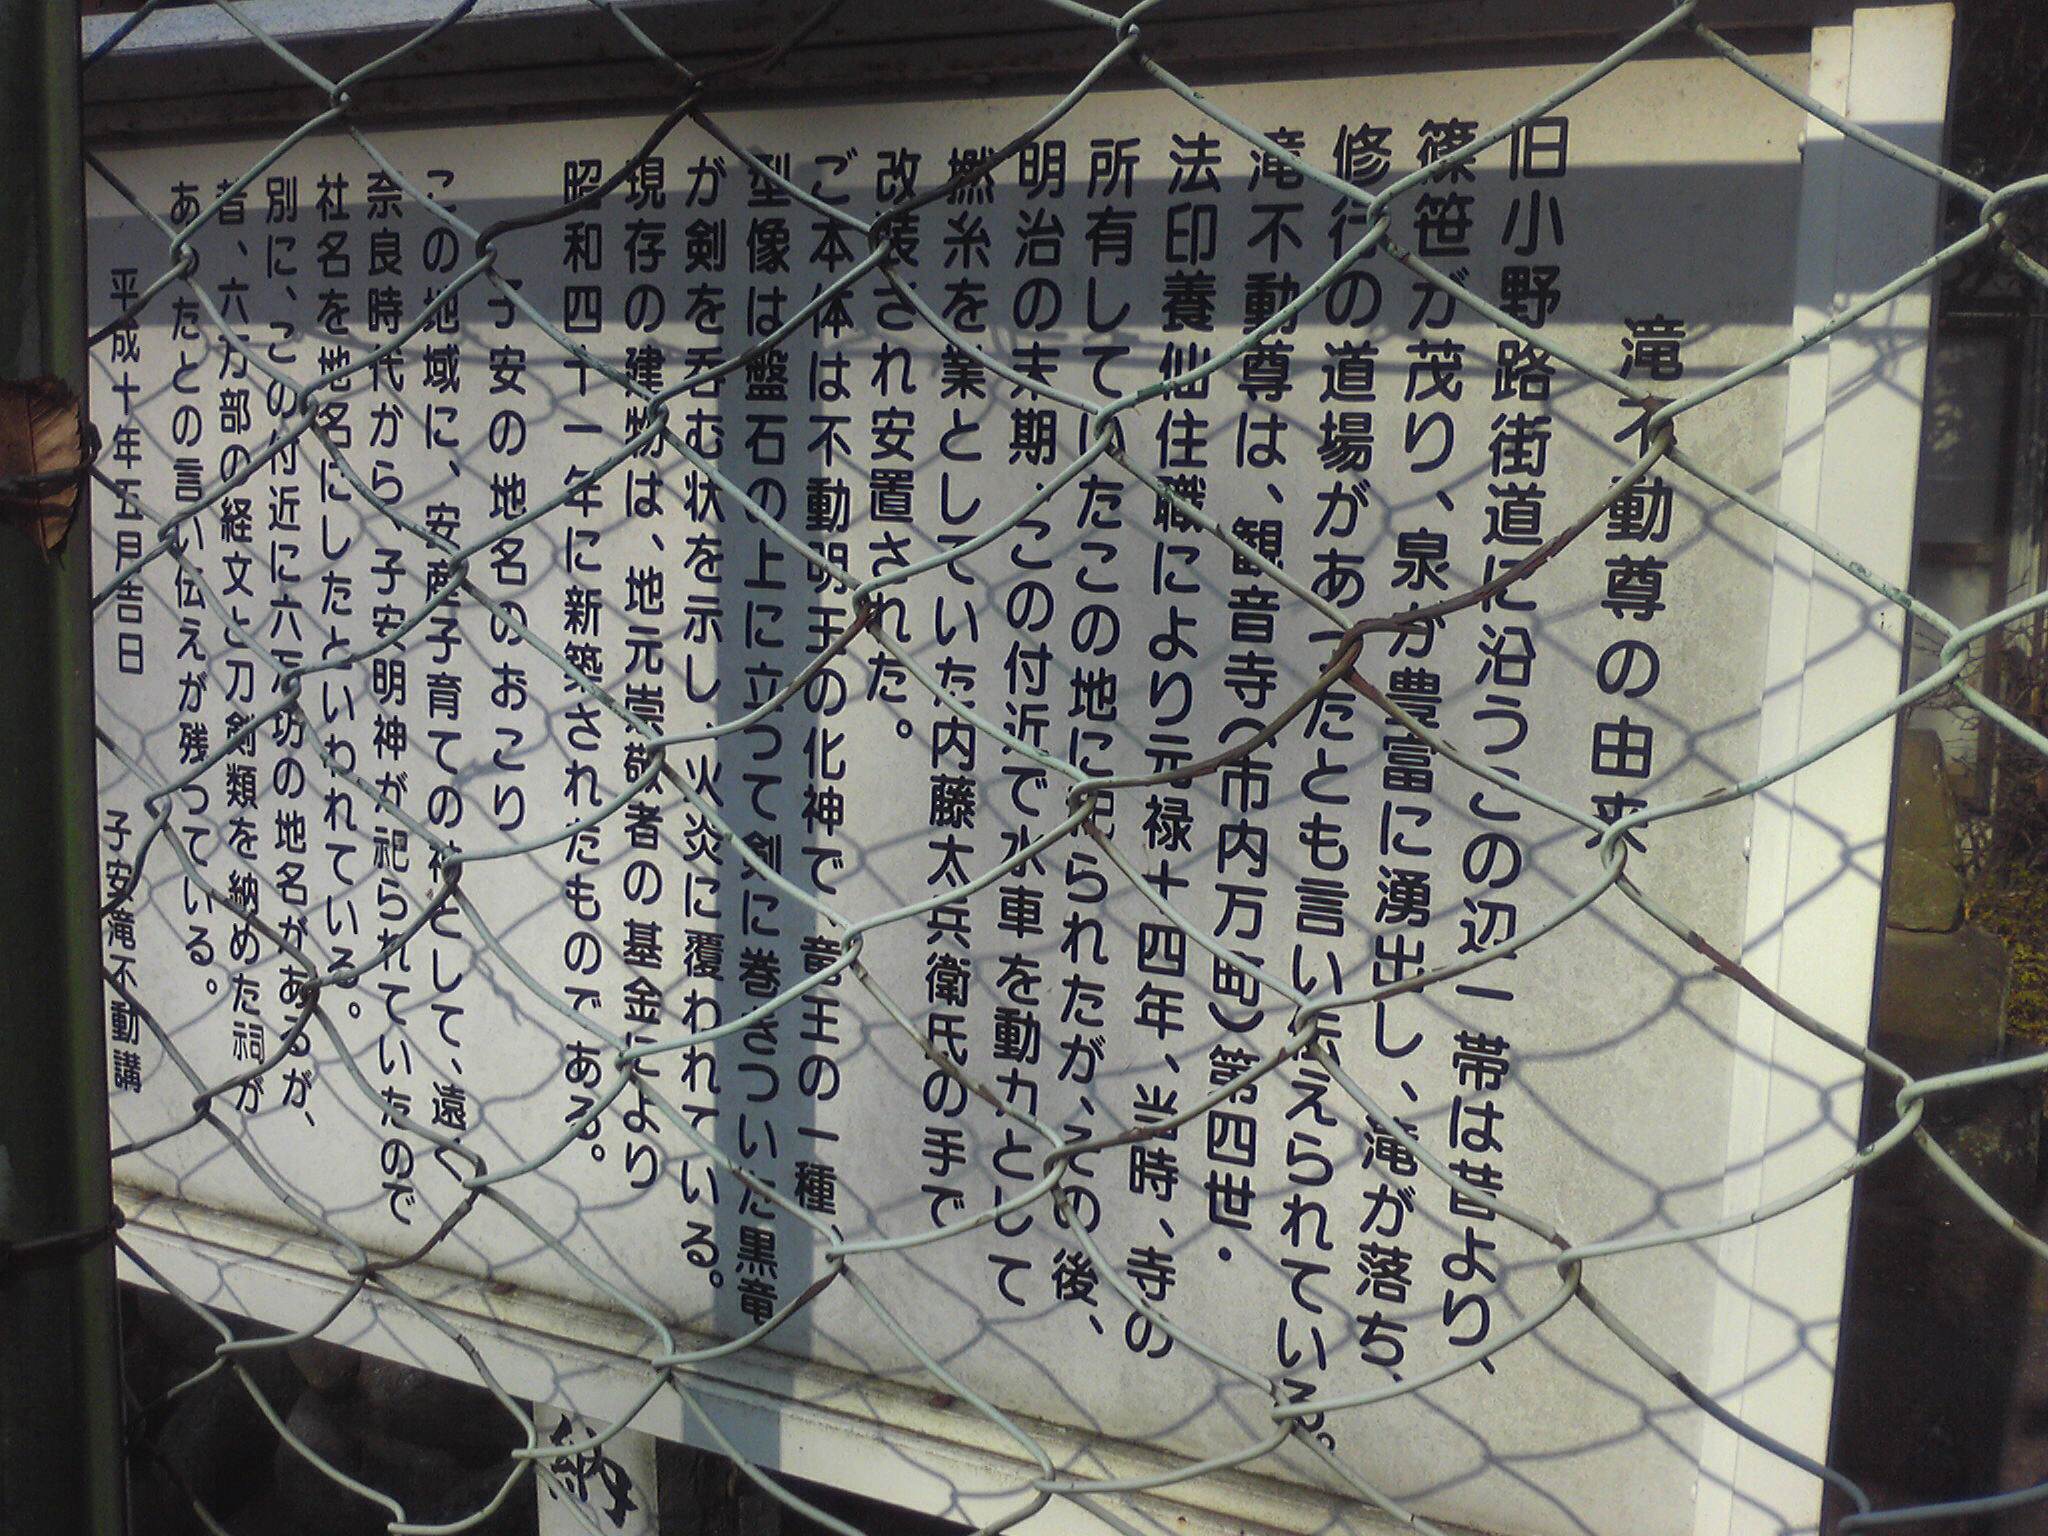 滝不動尊の由来
旧小野路街道に沿うこの辺一帯は昔より、
篠笹が茂り、泉が豊富に湧出し、滝が落ち、
修行の道場があったとも言い伝えられている。
滝不動尊は、観音寺(市内万町)第四世・
法印養仙住職により元禄十四年、当時、寺の
所有していたこの地に祀られたが、その後、
明治の末期、この付近で水車を動力として
撚糸を業としていた内藤太兵衛氏の手で
改装され安置された。
ご本体は不動明王の化神で、竜王の一種、
型像は盤石の上に立つて剣に巻きついた黒竜
が剣を呑む状を示し、火炎に覆われている。
現存の建物は、地元崇敬者の基金により
昭和四十一年に新築されたものである。
子安の地名のおこり
この地域に、安産子育ての神として、遠く
奈良時代から、子安明神が祀られていたので
社名を地名にしたといわれている。
別に、この付近に六万坊の地名があるが、
昔、六万部の経文と刀剣類を納めた祠が
あったとの言い伝えが残っている。
平成十年五月吉日 子安滝不動講
納